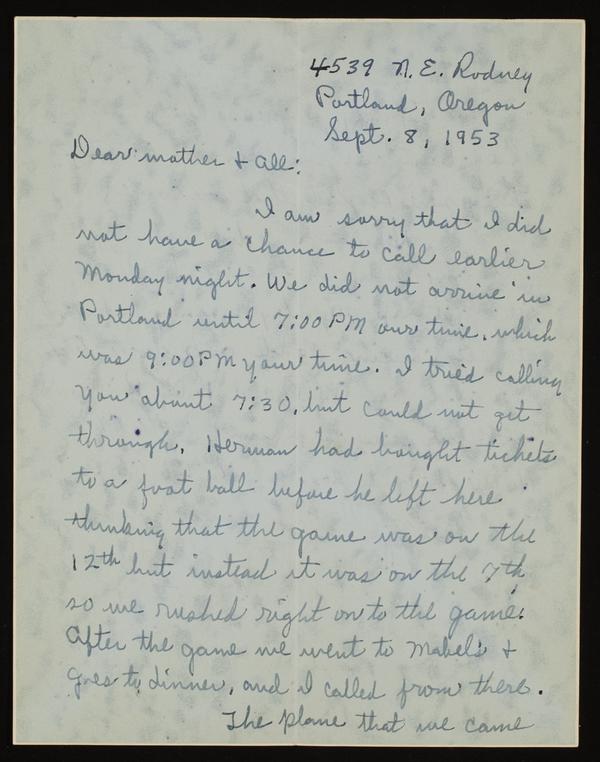 4539 N. E. Rodney
Portland, Oregon
Sept. 8, 1953
Dear mother & all:
I am sorry that I did
not have a chance to call earlier
Monday night. We did not arrive in
Portland until 7:00 PM our time, which
was 9:00 PM your time. I tried calling
you about 7:30, but could not get
through. Herman had bought tickets
to a foot ball before he left here
thinking that the game was on the
12th but instead it was on the 7th
so we rushed right on to the game.
After the game we went to Mabel's &
to dinner, and I called from there.
The plane that we came